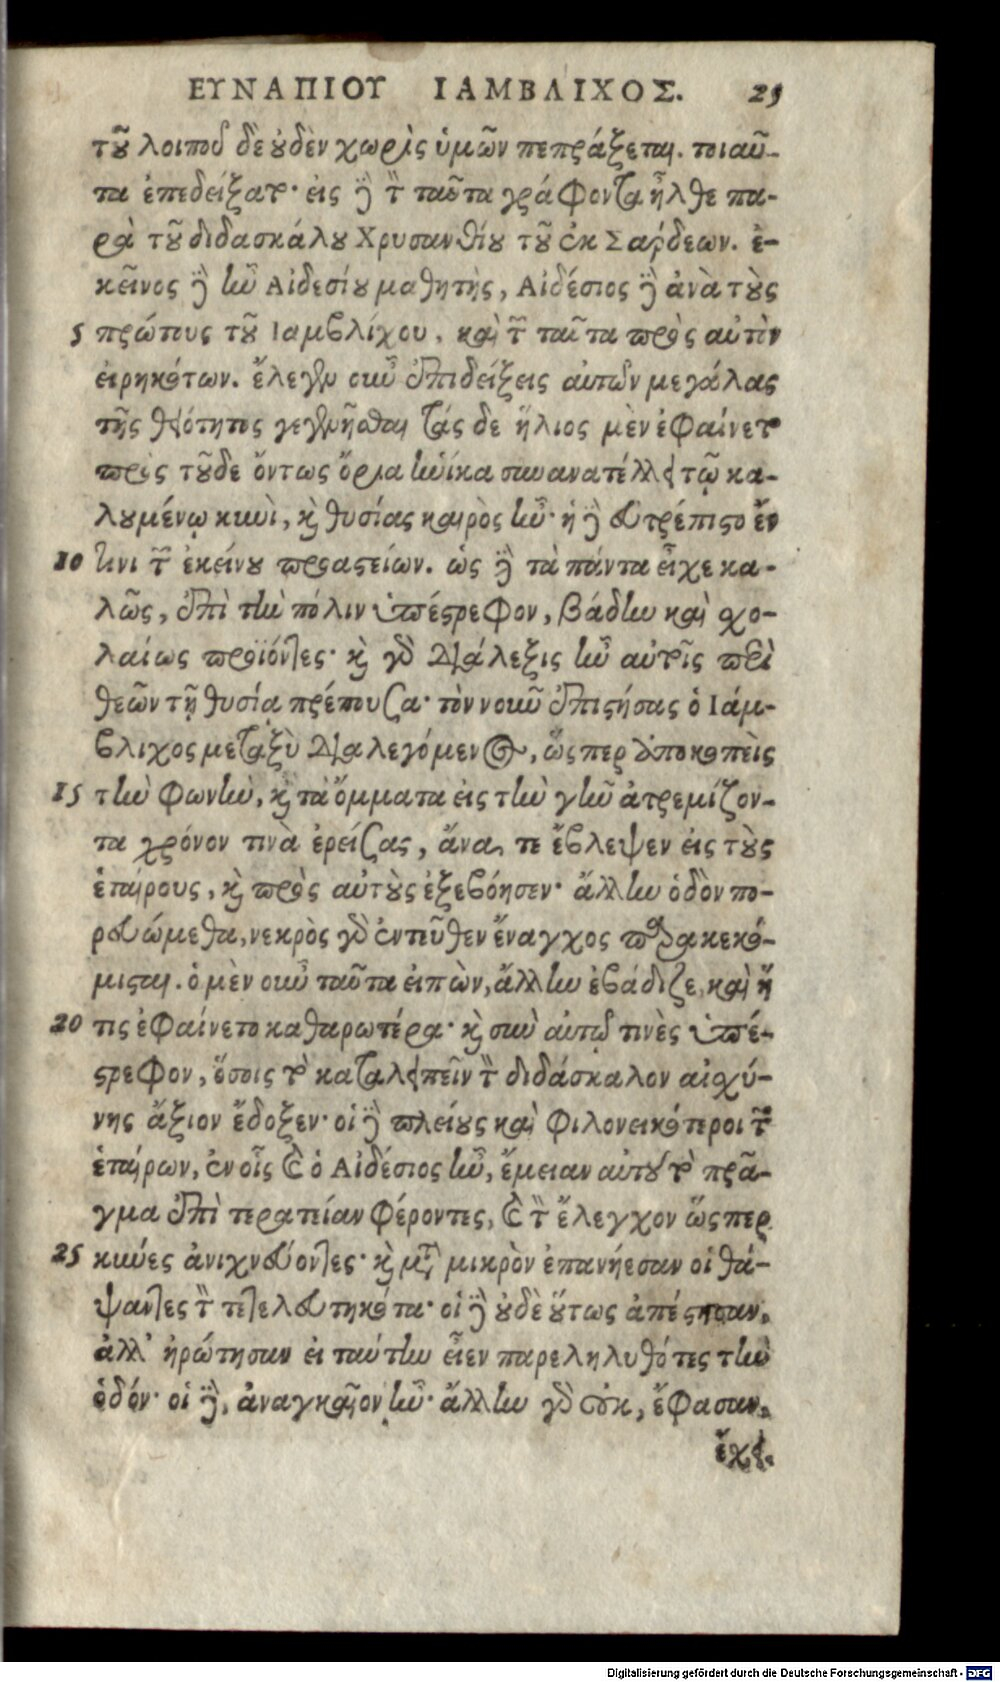 ΕΥΝΑΠΙΟΥ ΙΑΜΒΛΙΧΟΣ. 25
τοῦ λοιποῦ δὲ οὐδὲν χωρὶς ὑμῶν πεπράξεται. τοιαῦ-
τα ἐπεδείξατο· εἰς δὲ τὸν ταῦτα γράφοντα ἦλθε πα-
ρὰ τοῦ διδασκάλου Χρυσανθίου τοῦ ἐκ Σάρδεων. ἐ-
κεῖνος δὲ ἦν Αἰδεσίου μαθητὴς, Αἰδέσιος δὲ ἀνὰ τοὺς
5 πρώτους τοῦ Ιαμβλίχου, καὶ τῶν ταῦτα πρὸς αὐτὸν
εἰρηκότων. ἔλεγεν οὖν ἐπιδείξεις αὐτῶν μεγάλας
τῆς θειότητος γεγενῆσθαι τάς δε ἥλιος μὲν ἐφαίνετο
πρὸς τοῦδε ὄντως ὅρια ἡνίκα συνανατέλλει τῷ κα-
λουμένῳ κυνὶ, καὶ θυσίας καιρὸς ἦν· ἡ δὲ εὐτρέπιστο ἔν
10 τινι τῶν ἐκείνου προαστείων. ὡς δὲ τὰ πάντα εἶχε κα-
λῶς, ἐπὶ τὴν πόλιν ὑπέστρεφον, βάδην καὶ σχο-
λαίως προϊόντες· καὶ γὰρ διάλεξις ἦν αὐτοῖς περὶ
θεῶν τῇ θυσίᾳ πρέπουσα· τὸν νοῦν ἐπιστήσας ὁ Ιάμ-
βλιχος μεταξὺ διαλεγόμενος, ὥσπερ ἀποκοπεὶς
15 τὴν φωνὴν, καὶ τὰ ὄμματα εἰς τὴν γῆν ἀτρεμίζον-
τα χρόνον τινὰ ἐρείσας, ἄνω τε ἔβλεψεν εἰς τοὺς
ἑταίρους, καὶ πρὸς αὐτοὺς ἐξεβόησεν· ἄλλην ὁδὸν πο-
ρευώμεθα, νεκρὸς γὰρ ἐντεῦθεν ἔναγχος παρακεκό-
μισται. ὁ μὲν οὖν ταῦτα εἰπὼν, ἄλλην ἐβάδιζε, καὶ ἥ
20 τις ἐφαίνετο καθαρωτέρα· καὶ σὺν αὐτῷ τινὲς ὑπέ-
στρεφον, ὅσοις τὸ καταλειπεῖν τὸν διδάσκαλον αἰσχύ-
νης ἄξιον ἔδοξεν· οἱ δὲ πλείους καὶ φιλονεικότεροι τῶν
ἑταίρων, ἐν οἷς καὶ ὁ Αἰδέσιος ἦν, ἔμειναν αὐτοῦ τὸ πρᾶ-
γμα ἐπὶ τερατείαν φέροντες, καὶ τὸν ἔλεγχον ὥσπερ
25 κύνες ἀνιχνεύοντες· καὶ μετὰ μικρὸν ἐπανῄεσαν οἱ θά-
ψαντες τὸν τετελευτηκότα· οἱ δὲ οὐδὲ οὕτως ἀπέστησαν,
ἀλλ' ἠρώτησαν εἰ ταύτην εἶεν παρεληλυθότες τὴν
ὁδόν· οἱ δὲ, ἀναγκαῖον ἦν· ἄλλην γὰρ οὐκ, ἔφασαν,
ἔχει.
Digitalisierung gefördert durch die Deutsche Forschungsgemeinschaft - DFG